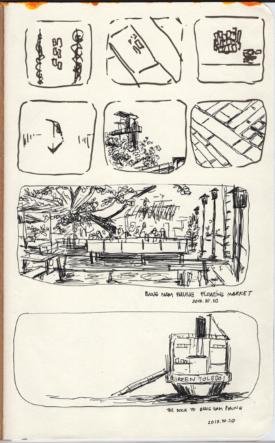 BANG NAM PHUNG FLOATING MARKET
2013.10.20
GREEN TOLEDO
THE DOCK TO BANG NAM PHUNG
2013.10.20